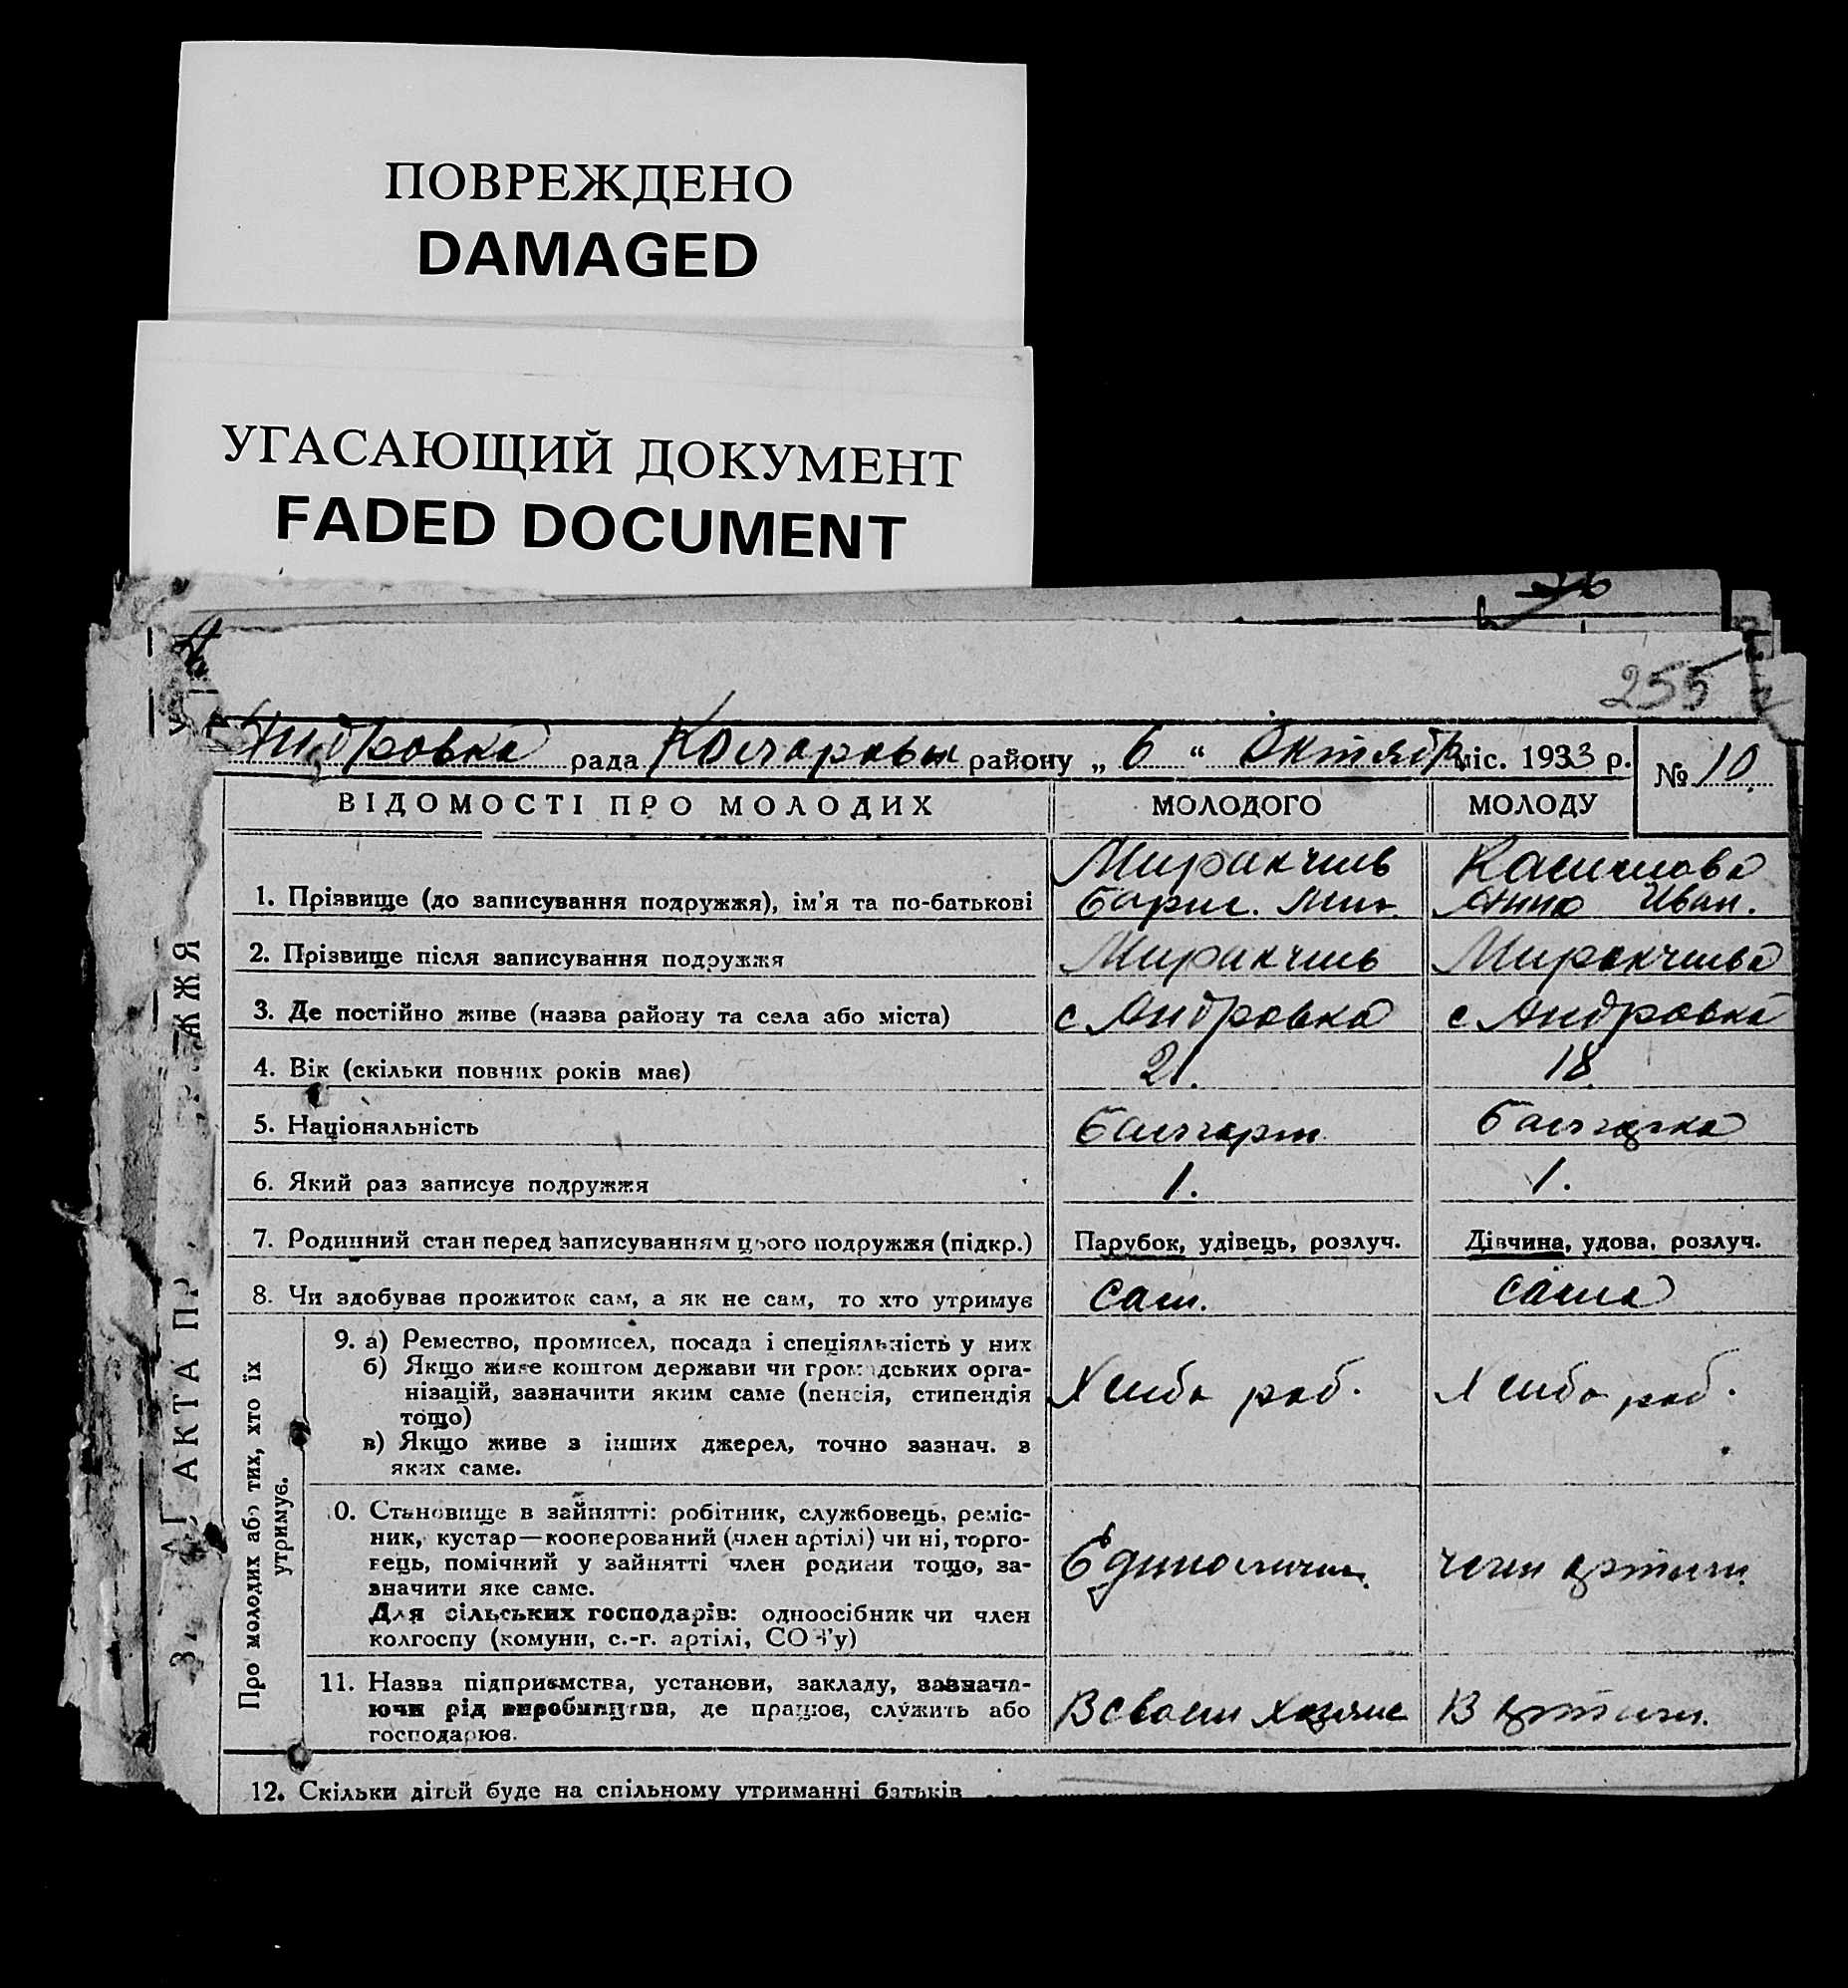 ПОВРЕЖДЕНО
DAMAGED
УГАСАЮЩИЙ ДОКУМЕНТ
FADED DOCUMENT
255
Андровка рада Колларовск району „ 6 “ Октября міс. 1933 р. № 10
ВІДОМОСТІ ПРО МОЛОДИХ МОЛОДОГО МОЛОДУ
1. Прізвище (до записування подружжя), ім'я та по-батькові
Анна Иван.
2. Прізвище після записування подружжя
3. Де постійно живе (назва району та села або міста) с Андровка с Андровка
4. Вік (скільки повних років має) 21. 18
5. Національність Балгарин Балгарка
6. Який раз записує подружжя 1. 1.
7. Родинний стан перед записуванням цього подружжя (підкр.) Парубок, удівець, розлуч. Дівчина, удова, розлуч.
8. Чи здобуває прожиток сам, а як не сам, то хто утримує сам. сама
Про молодих або тих, хто їх
утримує.
9. а) Ремество, промисел, посада і спеціяльність у них
б) Якщо живе коштом держави чи громадських орга-
нізацій, зазначити яким саме (пенсія, стипендія
тощо)
Хлибо роб. Хлибо роб.
в) Якщо живе з інших джерел, точно зазнач. з
яких саме.
0. Становище в зайнятті: робітник, службовець, реміс-
ник, кустар—кооперований (член артілі) чи ні, торго-
вець, помічний у зайнятті член родини тощо, за-
значити яке саме.
Единоличн. член артили
Для сільських господарів: одноосібник чи член
колгоспу (комуни, с.-г. артілі, СОЗ'у)
11. Назва підприємства, установи, закладу, зазнача-
ючи рід виробництва, де працює, служить або
господарює.
В своем хозяис В артили.
12. Скільки дітей буде на спільному утриманні батьків